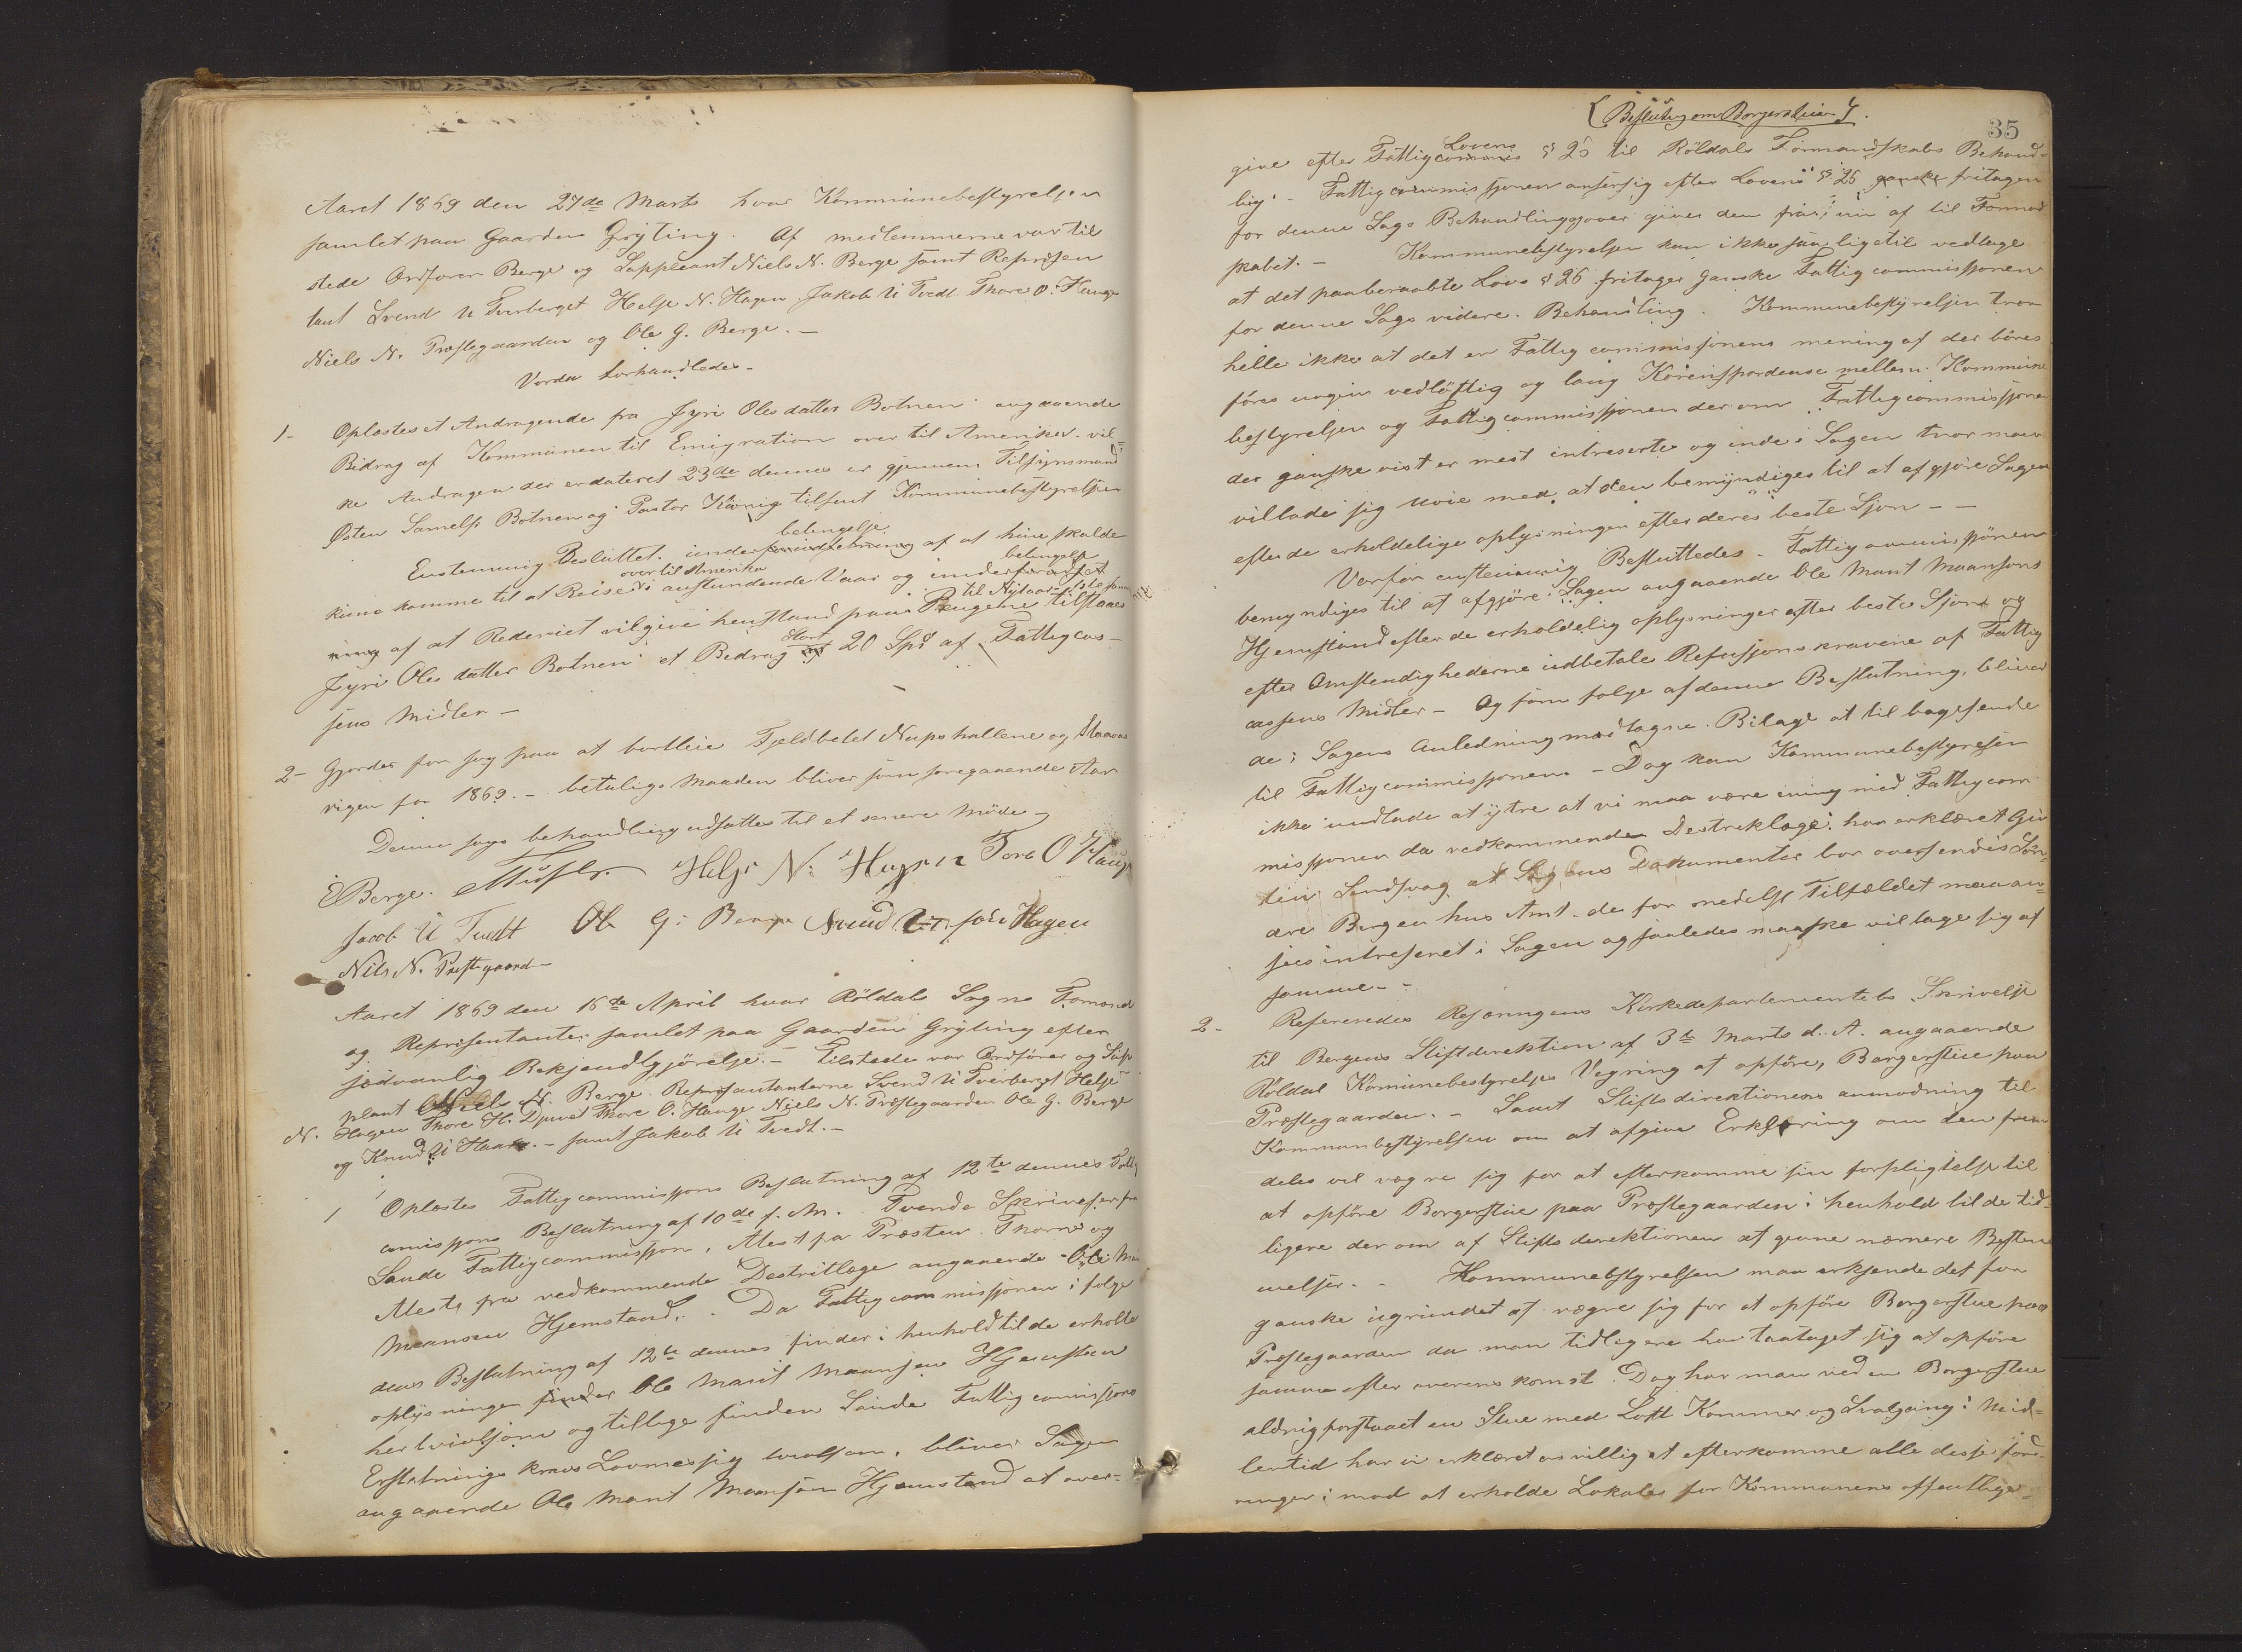 Aaret 1869 den 27de Marts hvar Kommunebestyrelsen
samlet paa Gaarden Gryting. Af medlemmerne var til
stede Ordforer Berge og Suppleant Niels N. Berge samt Represen
tant Svend U Tverberget Helge N. Hagen Jakob U Tvedt Thore O. Hauge
Niels N. Prestegaarden og Ole G. Berge. –
Vorda forhandledes –
1- Oplæstes et Andragende fra Jyri Olesdatter Botnen angaaende
Bidrag af Kommunen til Emigration over til Ameriker. vil-
ke Andragen der er dateret 23de dennes er gjennem Tilsynsmand
Østen Samels. Botnen og Pastor König tilsent Kommunebestyrelsen
betengelse
Enstemmig Besluttet. under forudsetning af at hun skulde
over til Amerika betengelse
kune komme til at Reise i anstundende Vaar og under forudset
til Nytaar
ning af at Rederiet vil give henstand paa Pengene tilstaaes
Stort
Jyri Olesdatter Botnen et Bedrag af 20 Spd af Fattigcas-
sens Midler –
2- Gjordes for sog paa at bortleie Fjeldbetet Nupshallene og Maava
vigen for 1869. – betalings Maaden bliver som foregaaende Aar
Denne sags behandling udsattes til et senere Möde –
EBerge. Helje N. Hagen Tore O Hauge
Jacob U Tvedt Ole G: Berge Svend Hagen
Nils N. Prestgaard –
Aaret 1869 den 16de April hvar Röldals Sogns Formand
og Represententer samlet paa Gaarden Gryting efter
sedvanlig Bekjendtgjörelse. – Tilstede var Ordförer og Sup
pleant Niels N. Berge. Represantanterne Svend U Tverberget Helje
N. Hagen Thore H. Djuve Thore O. Hauge Niels N. Prestegaarden Ole G. Berge
og Knud U Haare. – samt Jakob U Tvedt. –
1 Oplæstes Fattigcommissjons Beslutning af 12te dennes Fatt
comissjons Beslutning af 10de f. M. Tvende Skrivelser fra
Sande Fattigcommissjon, Atest fra Præsten Thorne og
Atest fra vedkommende Destriktlæge angaaende Ole Ma
Maansen Hjemstand. Da Fattigcommissjonen i folge
dens Beslutning af 12te dennes finder i henhold til de erholte
oplysninger finder Ole Marit Maansen Hjemsten
her tvivlsom og tillige finden Sande Fattigcomissjons
Erstatnings krav Lovmessig tvivlsom, bliver Sagen
angaaende Ole Marit Maansen Hjemstand at over-
{Beslutng om Borgerstuen}.
35
Lovens
give efter Fattigcommis § 25 til Röldals Formandskabs Behand-
lig. Fattigcommissjonen anser sig efter Lovens § 26 ganske fritagen
for denne Sags Behandling og over giver den fra sin af til Formand
skabet. – Kommunebestyrelsen kan ikke saa ligetil vedtage
at det paaberaabte Lovs § 26 fritager ganske Fattigcommissjonen
for denne Sags videre Behandling. Kommunebestyrelsen tror
heller ikke at det er Fattigcommissjonens mening af der böres
föres nogen vedlöftig og lang Korenspordense mellem Kommune
bestyrelsen og Fattigcommissjonen der om Fattigcommissjonen
der ganske vist er mest intreserte og inde i Sagen tror man
vil lade sig noie med at den bemyndiges til at afgjöre Sagen
efter de erholdelige oplysninger efter deres beste Sjon – –
Vorfor enstemmig Besluttedes – Fattigcommissjonen
bemyndiges til at afgjöre Sagen angaaende Ole Marit Maansens
Hjemstand efter de erholdelig oplysninger efter beste Sjon og
efter Omstendighederne udbetale Refusjonskravene af Fattig
cassens Midler – Og som folge af denne Beslutning, bliver
de i Sagens Anledning modtagne Bilage at til bagesende
til Fattigcommissjonen. – Dog kan Kommunebestyresen
ikke undlade at ytre at vi maa være ening med Fattigcom
missjonen da vedkommende Destreklæge har erklæret
Sindsvag at Sagens Dokumenter bor oversendes Sön-
dre Bergenhus Amt. da for medelst Tilfældet maa an-
sees intreseret i Sagen og saaledes maaske vil tage sig af
samme – –
2- Refereredes Rejæringens Kirkedepartementets Skrivelse
til Bergens Stiftdirektion af 3de Marts d. A. angaaende
Röldal Komunebestyrelses Vegring at opföre, Borgerstue paa
Præstegaarden. – Samt Stiftsdirektionens anmodning til
Kommunbestyrelsen om at afgive Erklæring om den frem
deles vil vægre sig for at efterkomme sin forpligtelse til
at opföre Borgerstue paa Præstegaarden i henhold til de tid-
ligere der om af Stiftsderektionen af givne nærmere Bestem
melser. – Kommunebestyrelsen maa erkjende det for
ganske ugrundet at vægre sig for at opföre Borgerstue paa
Præstegaarden da man tidligere har taataget sig at opföre
samme efter overens komst. Dog har man ved en Borgerstue
aldrig forstaaet en Stue med Loft Kammer og Svalgang i Mid-
lertid har vi erklæret os villig at efterkomme alle disse ford-
ringer imod at erholde Lokaler for Kommunens offentlige